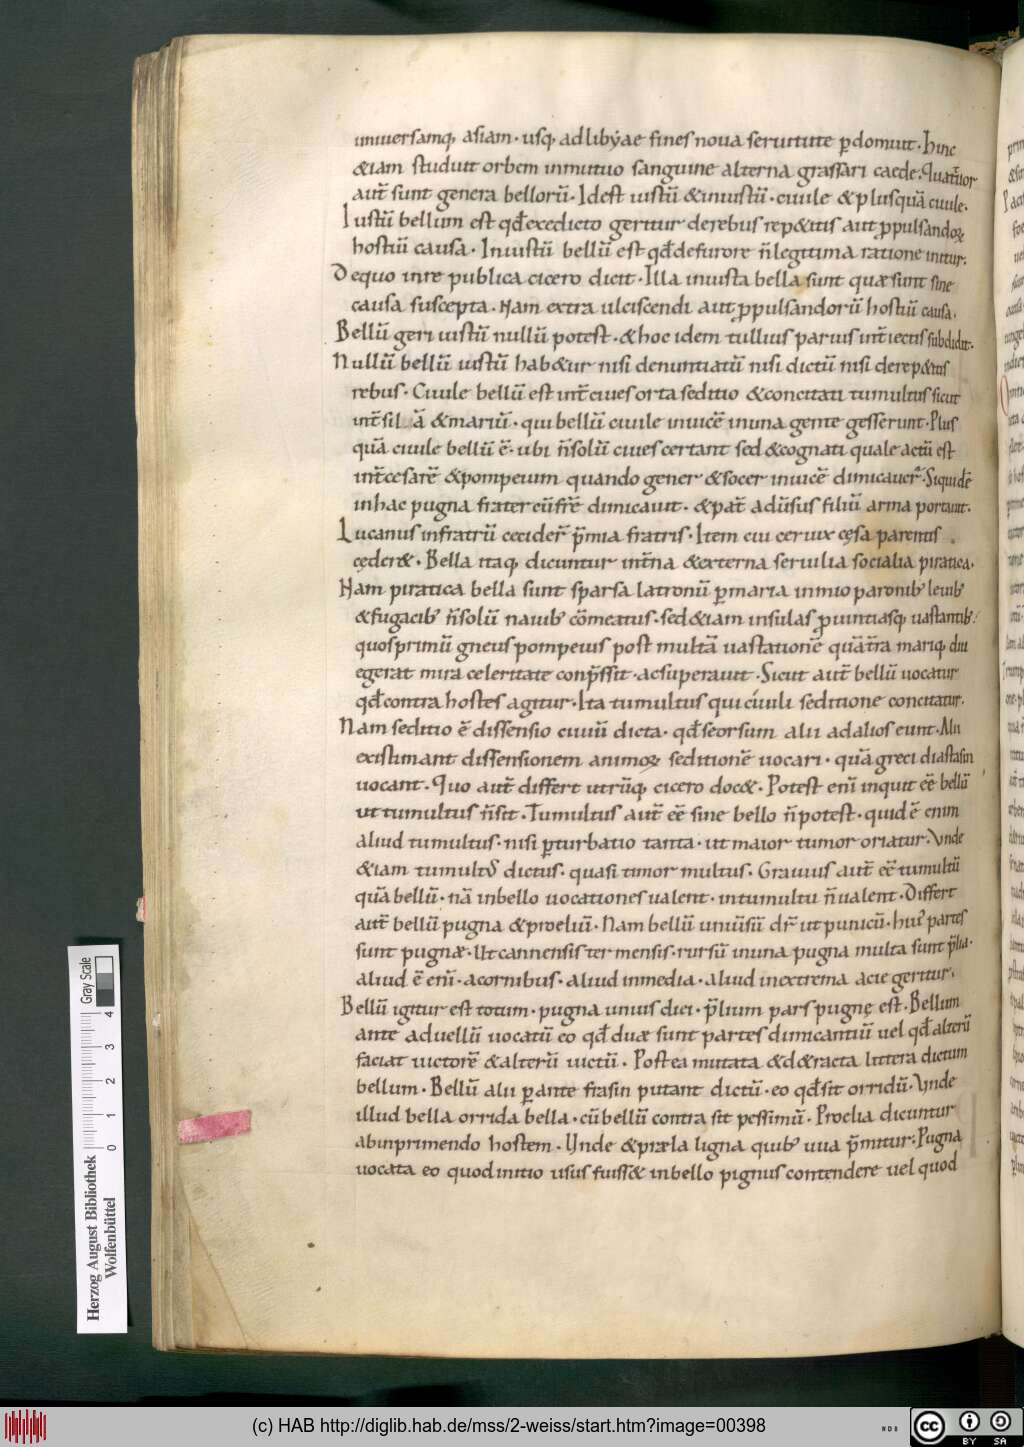 uniuersamq, asiam · usq, ad libẏae fines noua seruitute ꝑdomuit · Hinc
&iam studuit orbem inmutuo sanguine alterna grassari caede; Quattuor
aut̄ sunt genera bellorū · Id est iustū &iniustū · ciuile & plusquā ciuile ·
Iustū bellum est qd̄ exedicto geritur derebus rep&itis aut ꝓpulsandoꝝ
hostiū causa · Iniustū bellū est qd̄ defurore n̄legitima ratione initur ;
De quo inre publica cicero dicit · Illa iniusta bella sunt quæ sunt sine
causa suscepta · Nam extra ulciscendi aut ꝓpulsandorū hostiū causa ·
Bellū geri iustū nullū potest · & hoc idem tullius paruis int̄iectis subdidit ·
Nullū bellū iustū hab&ur nisi denuntiatū nisi dictū nisi derep&itis
rebus · Ciuile bellū est int̄ ciues orta seditio &concitati tumultus sicut
int̄ sil ā &mariū · qui bellū ciuile inuicē inuna gente gesserunt · Plus
quā ciuile bellū ē · ubi n̄solū ciues certant sed &cognati quale actū est
int̄ cesarē &pompeium quando gener &socer inuicē dimicauer̄ · Siquidē
inhac pugna frater cū fr̄e dimicauit · &pat̄ adūsus filiū arma portauit ·
Lucanus infratrū cecider̄ p̄mia fratris · Item cui ceruix cęsa parentis
cęder& · Bella itaq, dicuntur int̄na &externa seruilia socialia piratica ·
Nam piratica bella sunt sparsa latronū ꝑmaria inmio paronib; leuib;
&fugacib; n̄solū nauib; cōmeatus · sed &iam insulas ꝓuintiasq, uastantib;
quos primū gneus pompeius post multā uastationē quā t̄ra mariq, diu
egerat mira celeritate conp̄ssit · ac superauit · Sicut aut̄ bellū uocatur
qd̄ contra hostes agitur · Ita tumultus qui ciuili seditione concitatur ·
Nam seditio ē dissensio ciuiū dicta · qd̄ seorsum alii ad alios eunt · Alii
existimant dissensionem animoꝝ seditionē uocari · quā greci diastasin
uocant · Quo aut̄ differt utrūq, cicero doc& · Potest enī inquit eē bellū
ut tumultus n̄sit · Tumultus aut̄ eē sine bello n̄ potest · quid ē enim
aliud tumultus · nisi ꝑturbatio tanta · ut maior tumor oriatur · Vnde
&iam tumultus dictus · quasi timor multus · Grauius aut̄ eē tumultū
quā bellū · nā inbello uocationes ualent · intumultu n̄ ualent · Differt
aut̄ bellū pugna &proeliū · Nam bellū uniūsū dr̄ ut punicū · hui᾽ partes
sunt pugnæ · Ut cannensis ter mensis · rursū inuna pugna multa sunt p̄lia ·
aliud ē enī · acornibus · aliud inmedia · aliud inextrema acie geritur ·
Bellū igitur est totum · pugna unius diei · p̄lium pars pugnę est · Bellum
ante aduellū uocatū eo qd̄ duæ sunt partes dimicantiū uel qd̄ alterū
faciat uictorē &alterū uictū · Postea mutata &d&racta littera dictum
bellum · Bellū alii ꝑante frasin putant dictū · eo qd̄ sit orridū · Vnde
illud bella orrida bella · cū bellū contra sit pessimū · Proelia dicuntur
abinprimendo hostem · Unde &præla ligna quib; uua p̄mitur ; Pugna
uocata eo quod initio usus fuiss& inbello pignus contendere uel quod
Herzog August Bibliothek
Wolfenbüttel
0 1 2 3 4
Gray Scale
(c) HAB http://diglib.hab.de/mss/2-weiss/start.htm?image=00398
cc BY SA